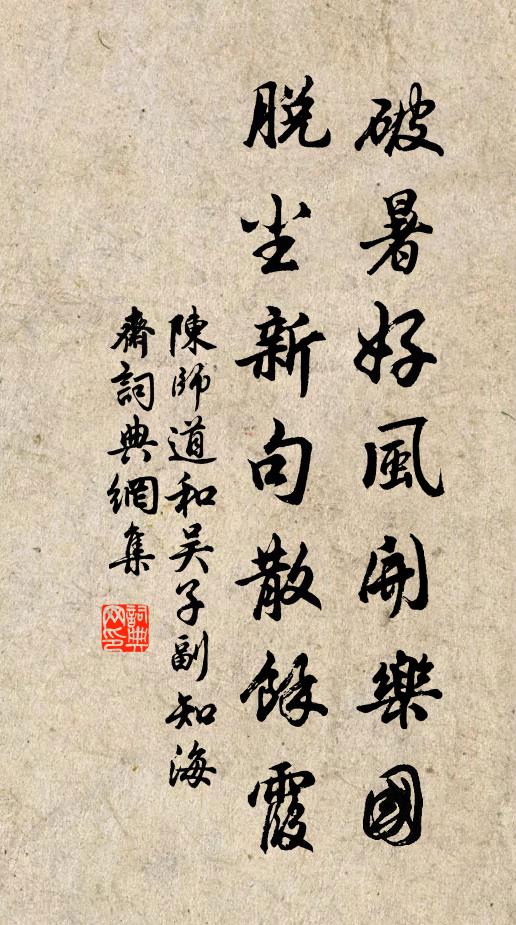 破暑好風開樂國
脫尘新句散餘霞
陳師道和吴子副知海
齋詞典網集
詞典
网印